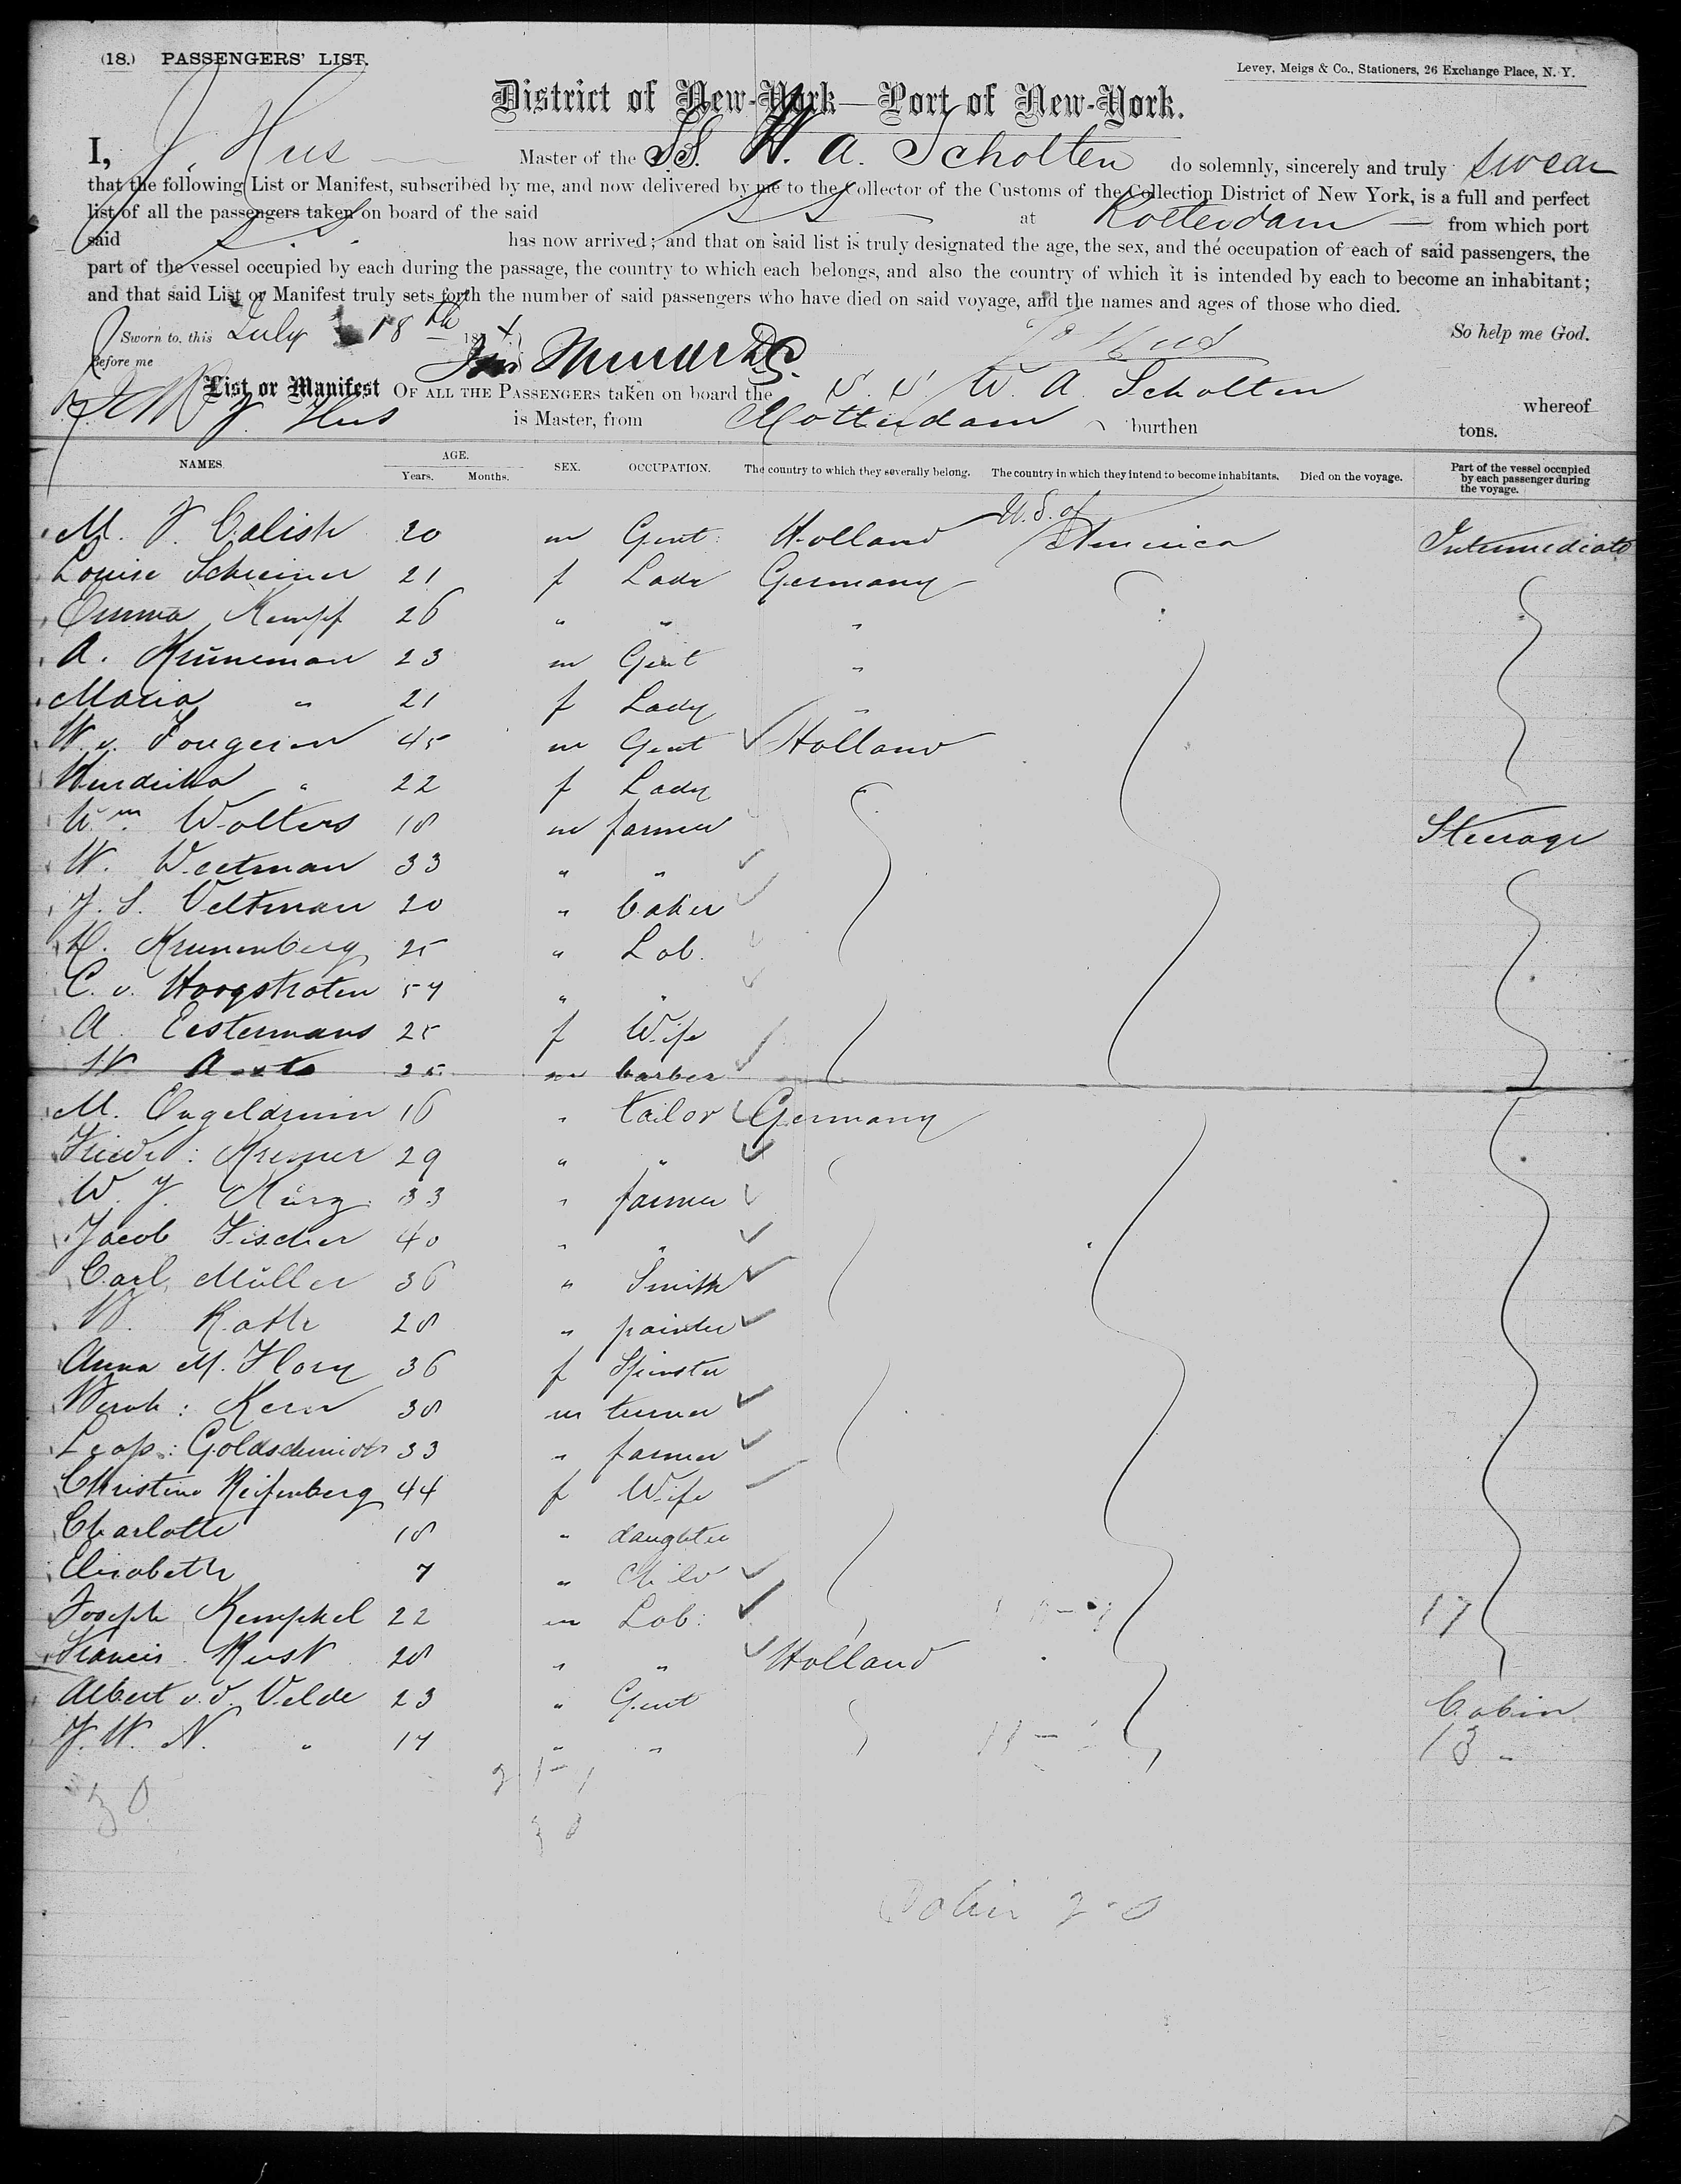 (18.) PASSENGERS' LIST.
Levey, Meigs & Co., Stationers, 26 Exchange Place, N. Y.
District of New-York—Port of New-York.
I, J. Hus Master of the SS. W. A. Scholten do solemnly, sincerely and truly swear
that the following List or Manifest, subscribed by me, and now delivered by me to the Collector of the Customs of the Collection District of New York, is a full and perfect
list of all the passengers taken on board of the said SS at Rotterdam from which port
said S.S. has now arrived; and that on said list is truly designated the age, the sex, and the occupation of each of said passengers, the
part of the vessel occupied by each during the passage, the country to which each belongs, and also the country of which it is intended by each to become an inhabitant;
and that said List or Manifest truly sets forth the number of said passengers who have died on said voyage, and the names and ages of those who died.
Sworn to, this July 18th 18 So help me God.
Before me J. Hus
List or Manifest OF ALL THE PASSENGERS taken on board the S. S. W. A. Scholten whereof
J. Hus is Master, from Rotterdam burthen tons.
NAMES. AGE. Years. Months. SEX. OCCUPATION. The country to which they severally belong. The country in which they intend to become inhabitants. Died on the voyage. Part of the vessel occupied by each passenger during the voyage.
M. J. Calish 20 m Gent: Holland U.S. of America Intermediate
Louise Schreiner 21 f Lady Germany
Emma Kempf 26 " " "
A. Krüneman 23 m Gent "
Maria " 21 f Lady "
W. v. 45 m Gent Holland
Hendrika " 22 f Lady
Wm. Wolters 18 m farmer Steerage
W. Weetman 33 " "
J. S. Veltman 20 " baker
H. Krunenberg 25 " Lab.
C. v. Hoogstraten 57 " "
A. Eestermans 25 f Wife
25 m barber
M. 16 " tailor Germany
Friedr: Kremer 29 " "
W. J. Kurz 33 " farmer
Jacob Fischer 40 " "
Carl Müller 36 " Smith
Kath 28 " painter
Anna M. Flory 36 f Spinster
Kern 38 m turner
Leop: Goldschmidt 33 " farmer
Christine Reifenberg 44 f Wife
Charlotte 18 " daughter
Elisabeth 7 " Child
Joseph Kemphel 22 m Lab: 17
Francis Rust 28 " " Holland
Albert v. d. Velde 23 " Gent Cabin
J. W. N. " 17 " " 13
30
30